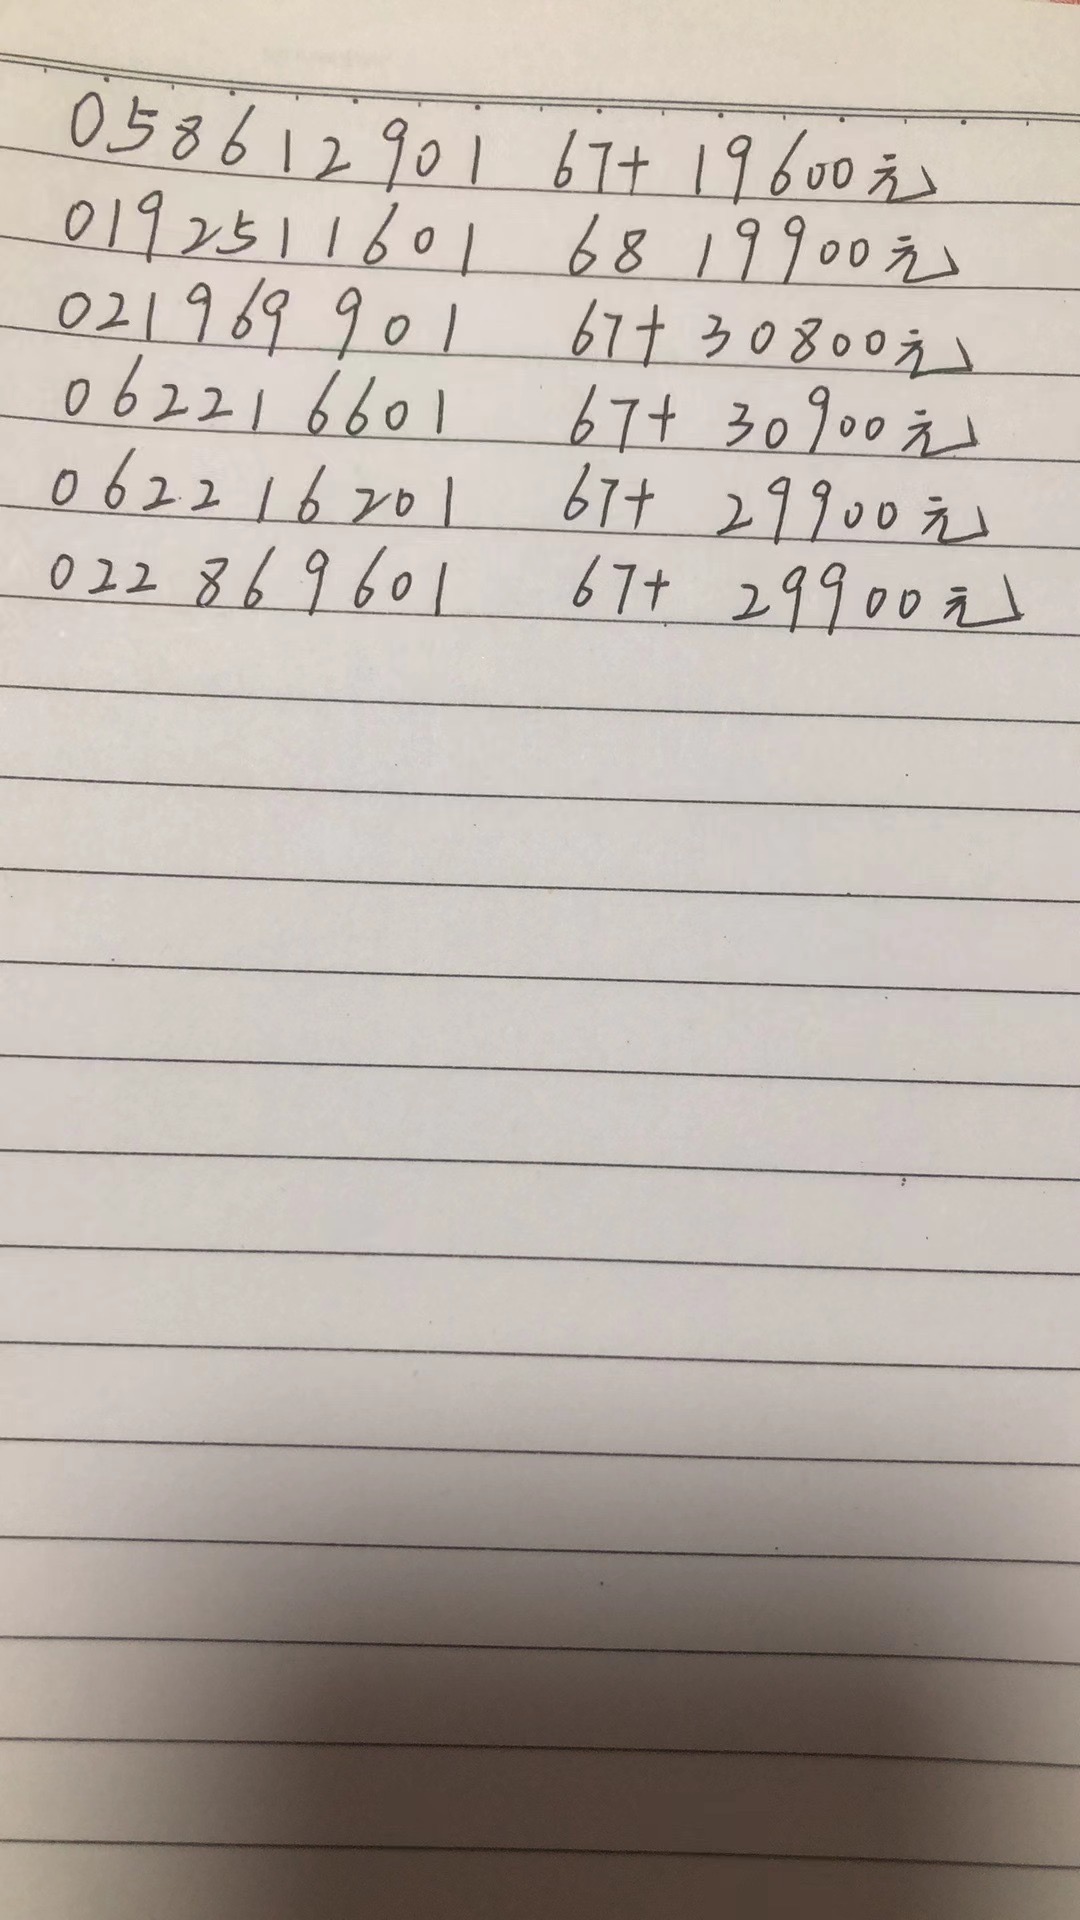 058612901 67+ 19600元
0192511601 68 19900元
021969901 67+ 30800元
062216601 67+ 30900元
062216201 67+ 29900元
022869601 67+ 29900元